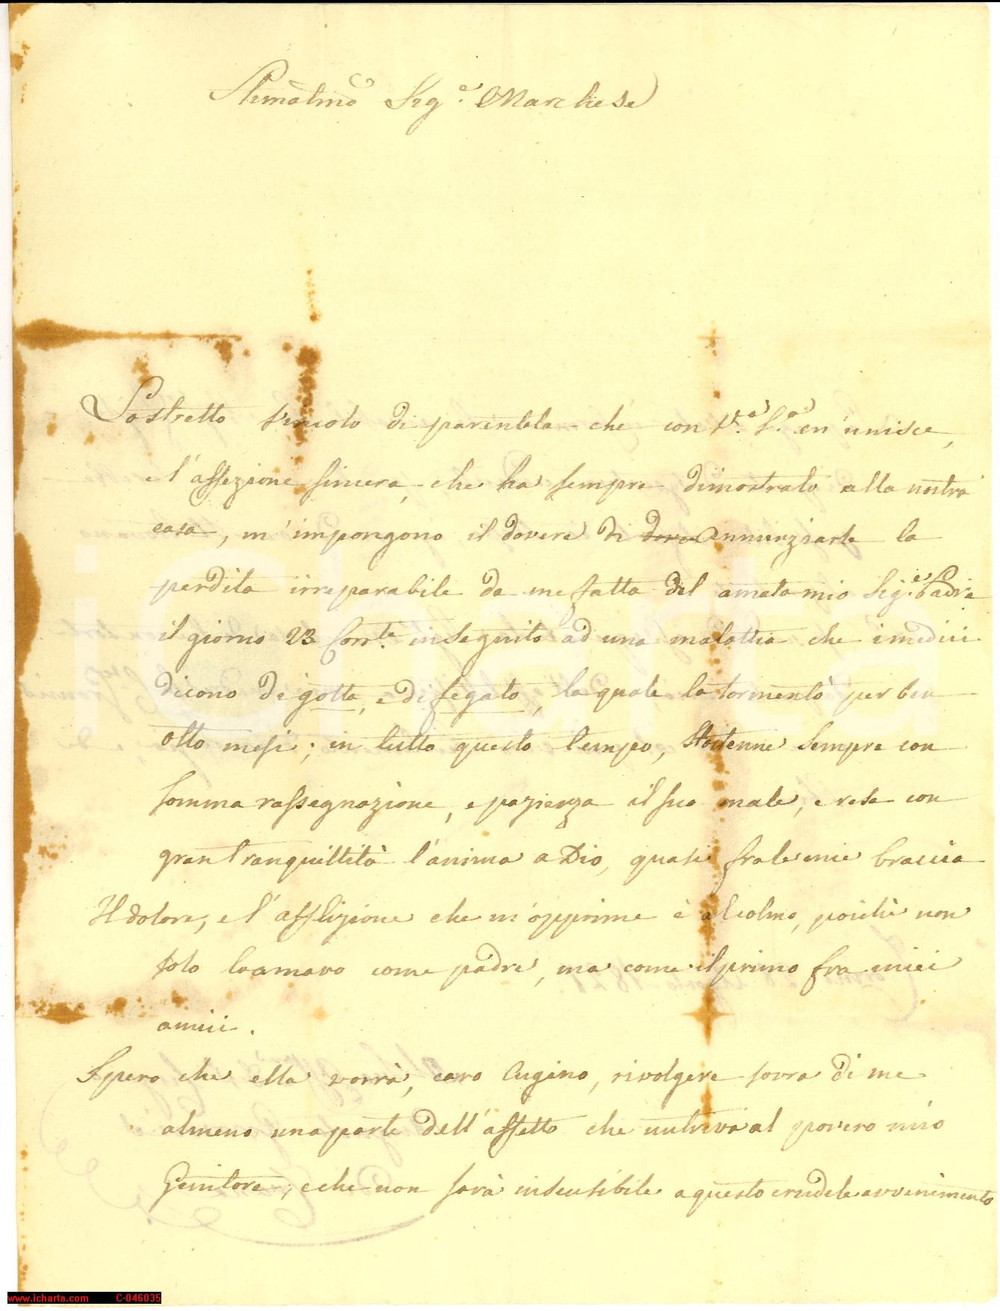 Stimatmo Sigr. Marchese
Lo stretto vincolo di parentela che con V.a S.a m'unisce,
e l'affezione sincera, che ha sempre dimostrato alla nostra
casa, m'impongono il dovere di annunziarle la
perdita irreparabile da me fatta del amato mio Sig.e Padre
il giorno 23 Corrte. in seguito ad una malattia che i medici
dicono di gotta, e di fegato, la quale lo tormentò per ben
otto mesi; in tutto questo tempo, sostenne sempre con
somma rassegnazione, e pazienza il suo male, e rese con
gran tranquillità l'anima a Dio, quasi fra le mie braccia
Il dolore, e l'afflizione che m'opprime è al colmo, poichè non
solo lo amavo come padre, ma come il primo fra miei
amici.
Spero che ella vorrà, caro Cugino, rivolgere sovra di me
almeno una parte dell'affetto che nutriva al povero mio
Genitore, e che non sarà insensibile a questo crudele avvenimento
www.icharta.com C-046035